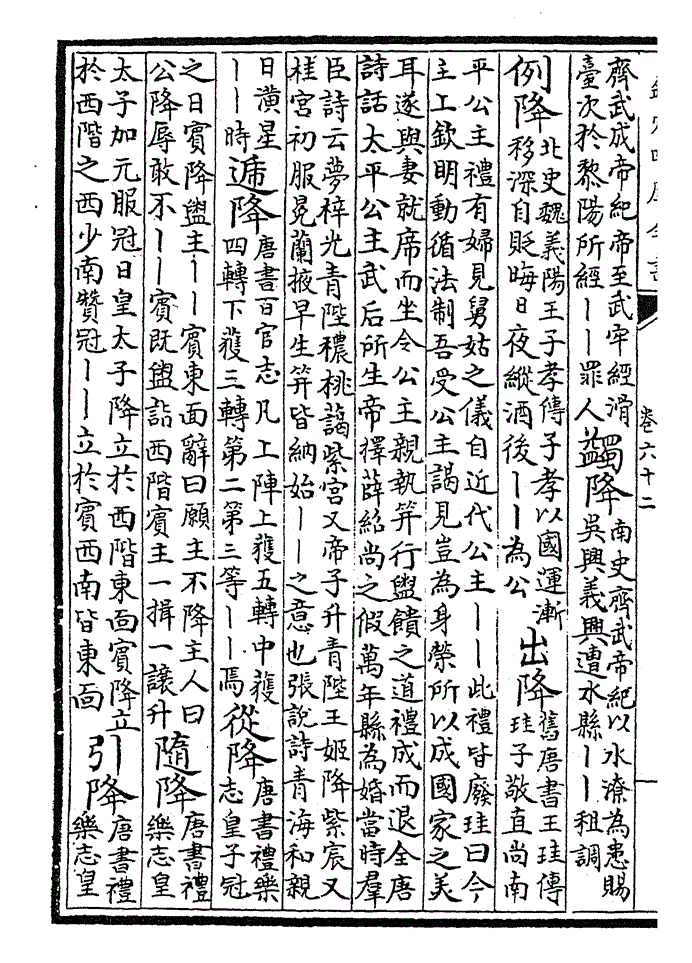 欽定四庫全書
卷六十二
齊武成帝紀帝至武牢經滑
臺次於黎陽所經丨丨罪人
蠲降
南史齊武帝紀以水潦為患賜
吳興義興遭水縣丨丨租調
例降
北史魏義陽王子孝傳子孝以國運漸
移深自貶晦日夜縱酒後丨丨為公
出降
舊唐書王珪傳
珪子敬直尚南
平公主禮有婦見舅姑之儀自近代公主丨丨此禮皆廢珪曰今
主上欽明動循法制吾受公主謁見豈為身榮所以成國家之美
耳遂與妻就席而坐令公主親執笲行盥饋之道禮成而退全唐
詩話太平公主武后所生帝擇薛紹尚之假萬年縣為婚當時羣
臣詩云夢梓光青陛穠桃藹紫宮又帝子升青陛王姬降紫宸又
桂宮初服冕蘭掖早生笄皆納始丨丨之意也張說詩青海和親
日潢星
丨丨時
遞降
唐書百官志凡上陣上獲五轉中獲
四轉下獲三轉第二第三等丨丨焉
從降
唐書禮樂
志皇子冠
之日賓降盥主丨丨賓東面辭曰願主不降主人曰
公降辱敢不丨丨賓既盥詣西階賓主一揖一讓升
隨降
唐書禮
樂志皇
太子加元服冠日皇太子降立於西階東面賓降立
於西階之西少南贊冠丨丨立於賓西南皆東面
引降
唐書禮
樂志皇